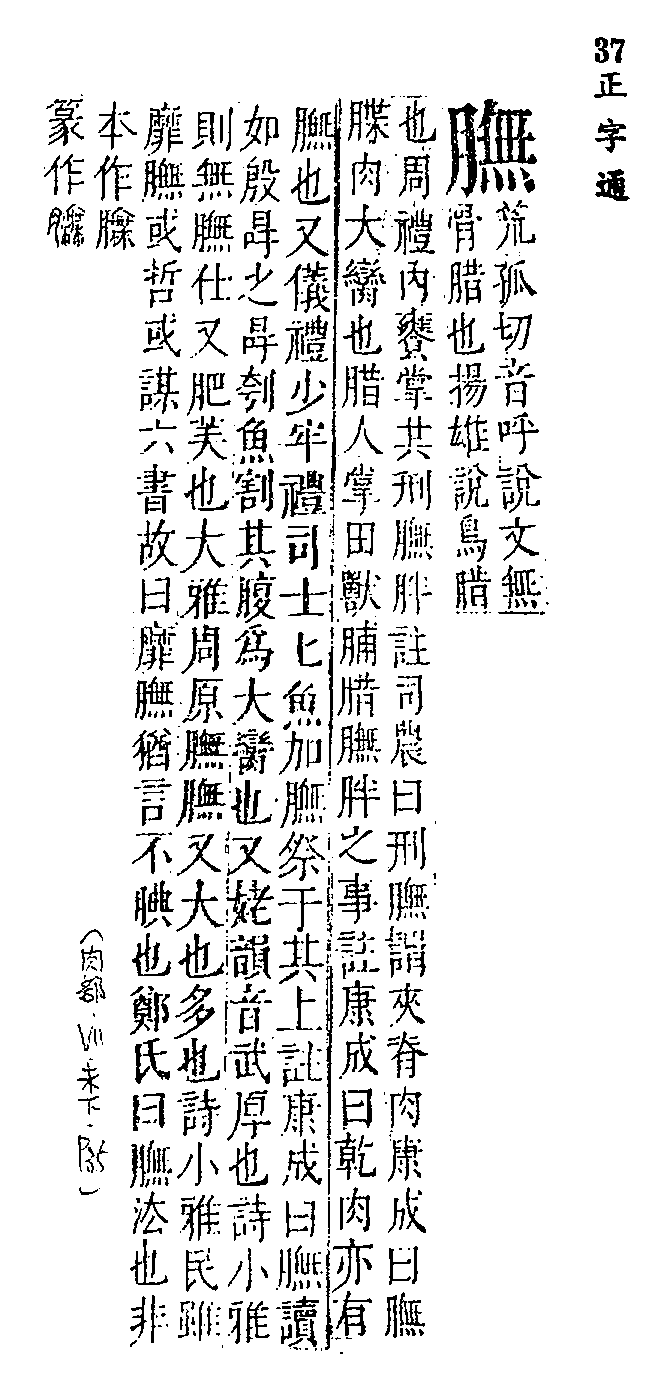 37正字通
膴
荒孤切音呼說文無
骨腊也揚雄說鳥腊
也周禮內饔掌共刑膴胖註司農曰刑膴謂夾脊肉康成曰膴
䐑肉大臠也腊人掌田獸脯腊膴胖之事註康成曰乾肉亦有
膴也又儀禮少牢禮司士匕魚加膴祭于其上註康成曰膴讀
如殷冔之冔刳魚割其腹爲大臠也又姥韻音武厚也詩小雅
則無膴仕又肥美也大雅周原膴膴又大也多也詩小雅民雖
靡膴或哲或謀六書故曰靡膴猶言不腆也鄭氏曰膴法也非
本作
篆作
(肉部·VII·未下·P35)